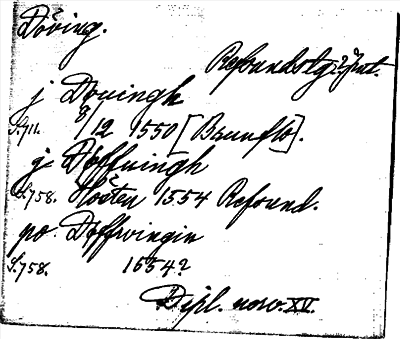 Döving.
Refsundstg. Jmt.
j Dovingh
S. 711. 8/12 1550 [Brunflo].
j Doffuingh
S. 758. Hösten 1554 Refsund.
po Doffwingin
S. 758. 1554?
Dipl. norv. XV.